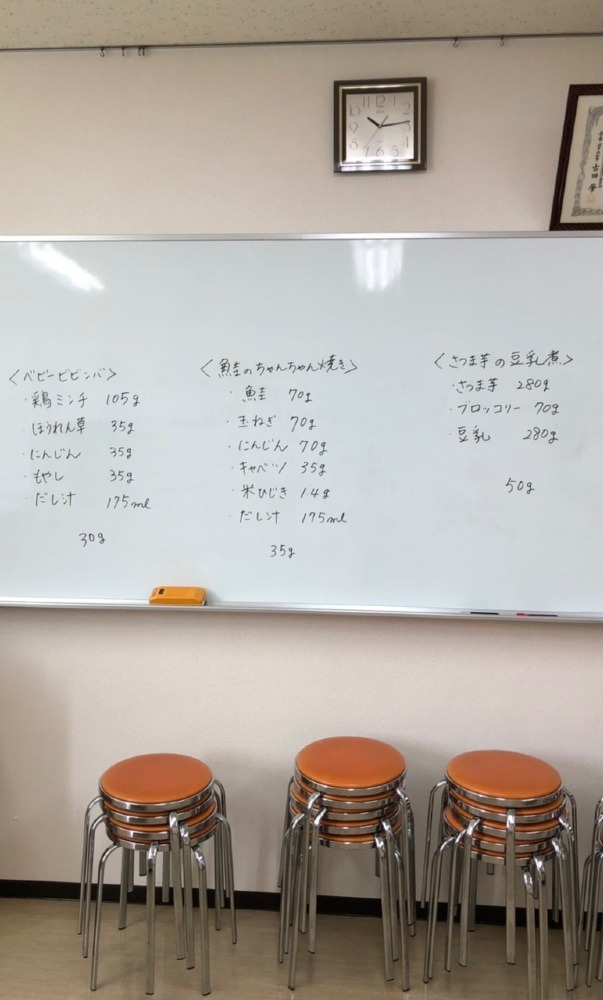 <ベビービビンバ>
・鶏ミンチ 105g
・ほうれん草 35g
・にんじん 35g
・もやし 35g
・だし汁 175ml
30g
<鮭のちゃんちゃん焼き>
・鮭 70g
・玉ねぎ 70g
・にんじん 70g
・キャベツ 35g
・米ひじき 1.4g
・だし汁 175ml
35g
<さつま芋の豆乳煮>
・さつま芋 280g
・ブロッコリー 70g
・豆乳 280g
50g
11 12 1 2 3 4 5 6 7 8 9 10
吉田